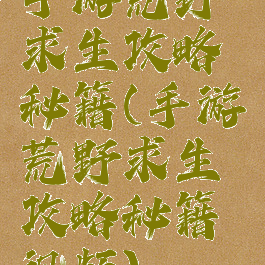 手游荒野
求生攻略
秘籍(手游
荒野求生
攻略秘籍
视频)